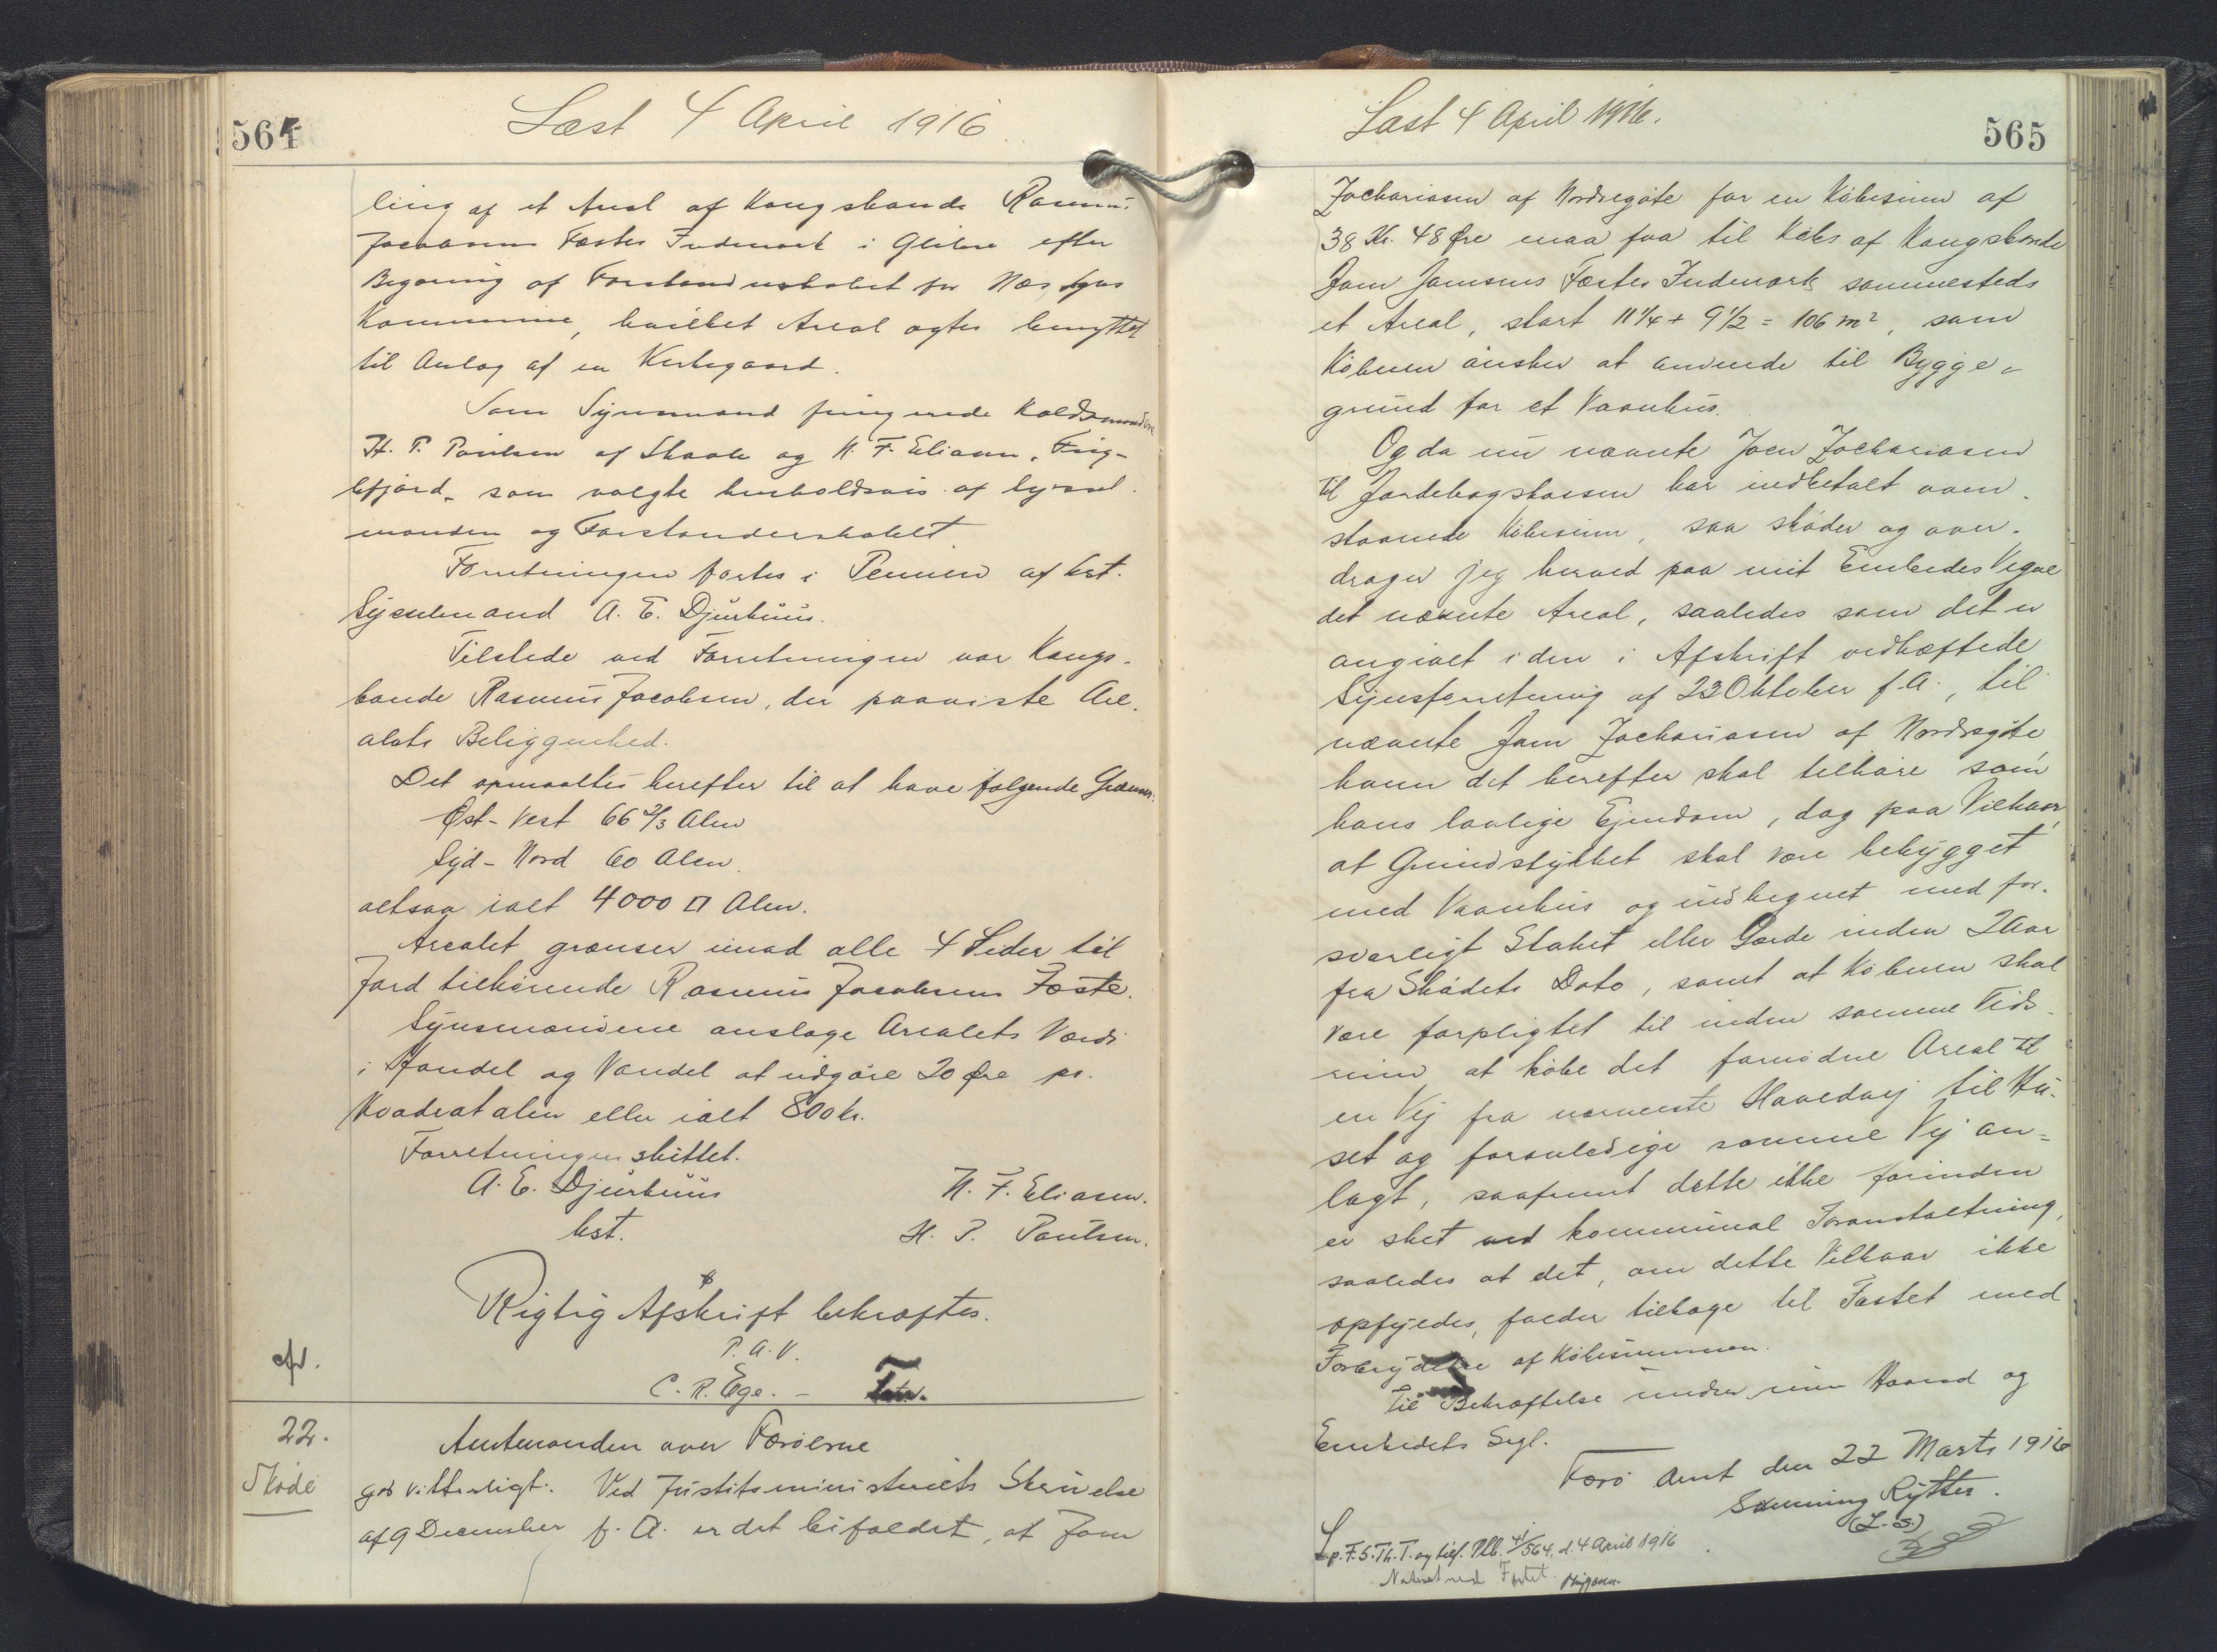 564
Læst 4 April 1916
ling af et Areal af Kongsbonde Rasmus
Jacobsens Fæstes Indmark i Glibre efter
Begæring af Forstanderskabet for Næs
Kommune, hvilket Areal agtes benyttet
til Anlæg af en Kirkegaard.
Som Synsmænd fungerede Kaldsmændene
H. P. Poulsen af Skaale og N. F. Eliasen, Fug-
lefjord, som valgte henholdsvis af Syssel-
manden og Forstanderskabet.
Forretningen førtes i Pennen af kst.
Sysselmand A. E. Djurhuus.
Tilstede ved Forretningen var Kongs-
bonde Rasmus Jacobsen, der paaviste Are-
alets Beliggenhed.
Det opmaaltes herefter til at have følgende Grænser:
Øst-Vest 66 2/3 Alen
Syd-Nord 60 Alen.
altsaa ialt 4000 □ Alen.
Arealet grænser imod alle 4 Sider til
Jord tilhørende Rasmus Jacobsens Fæste.
Synsmændene anslage Arealets Værdi
i Handel og Vandel at udgøre 20 Øre pr.
Kvadratalen eller ialt 800 kr.
Forretningen sluttet.
A. E. Djurhuus N. F. Eliasen.
kst. H. P. Poulsen.
Rigtig Afskrift bekræftes.
P. A. V.
C. R. Ege. -
22.
Skøde
Amtmanden over Færøerne
gør vitterligt: Ved Justitsministeriets Skrivelse
af 9 December f. A. er det bifaldet, at Joen
Læst 4 April 1916.
565
Zachariasen af Nordregøte for en Købesum af
38 Kr. 48 Øre maa faa til Købs af Kongsbonde
Joen Joensens Fæstes Indmark sammesteds
et Areal, stort 11 1/4 + 9 1/2 = 106 m², som
Køberen ønsker at anvende til Bygge=
grund for et Vaanhus.
Og da nu nævnte Joen Zachariasen
til Jordebogskassen har indbetalt oven-
staaende Købesum, saa skøder og over-
drager jeg herved paa mit Embedes Vegne
det nævnte Areal, saaledes som det er
angivet i den i Afskrift vedhæftede
Synsforretning af 22 Oktober f. A., til
nævnte Joen Zachariasen af Nordregøte,
hvem det herefter skal tilhøre som
hans lovlige Ejendom, dog paa Vilkaar,
at Grundstykket skal være bebygget
med Vaanhus og indhegnet med for-
svarligt Stakit eller Gærde inden 2 Aar
fra Skødets Dato, samt at Køberen skal
være forpligtet til inden samme Tids-
rum at købe det fornødne Areal til
en Vej fra nærmeste Hovedvej til Hu-
set og foranledige samme Vej an=
lagt, saafremt dette ikke forinden
er sket ved kommunal Foranstaltning,
saaledes at det, om dette Vilkaar ikke
opfyldes, falder tilbage til Fæstet med
Forbrydelse af Købesummen.
Til Bekræftelse under min Haand og
Embedets Segl.
Færø Amt den 22 Marts 1916
Svenning Rytter.
(L.S.)
L. p. F. S. Th. T. og til. Plb. 4/564. d. 4 April 1916
Noteret ved Fæstet.